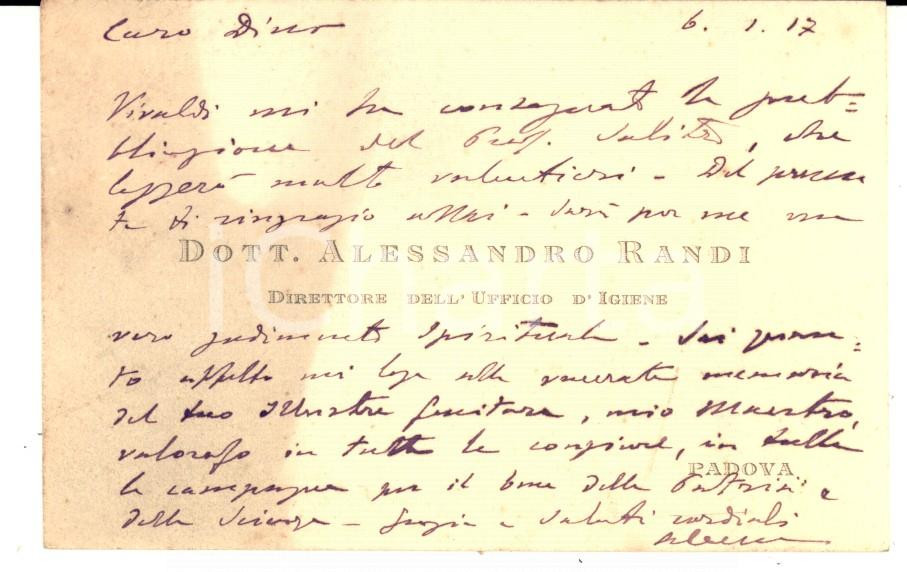 Caro Dino 6. 1. 17
Vivaldi mi ha consegnato la pub=
blicazione del Prof. , che
leggerò molto volentieri - Del presen
te ti ringrazio assai - Sarà per me un
DOTT. ALESSANDRO RANDI
DIRETTORE DELL'UFFICIO D'IGIENE
vero godimento spirituale - Sai quan=
to affetto mi lega alla venerata memoria
del tuo Illustre genitore, mio Maestro,
valoroso in tutte le , in tutte
PADOVA
le campagne per il bene della Patria e
della Scienza - Grazie e saluti cordiali